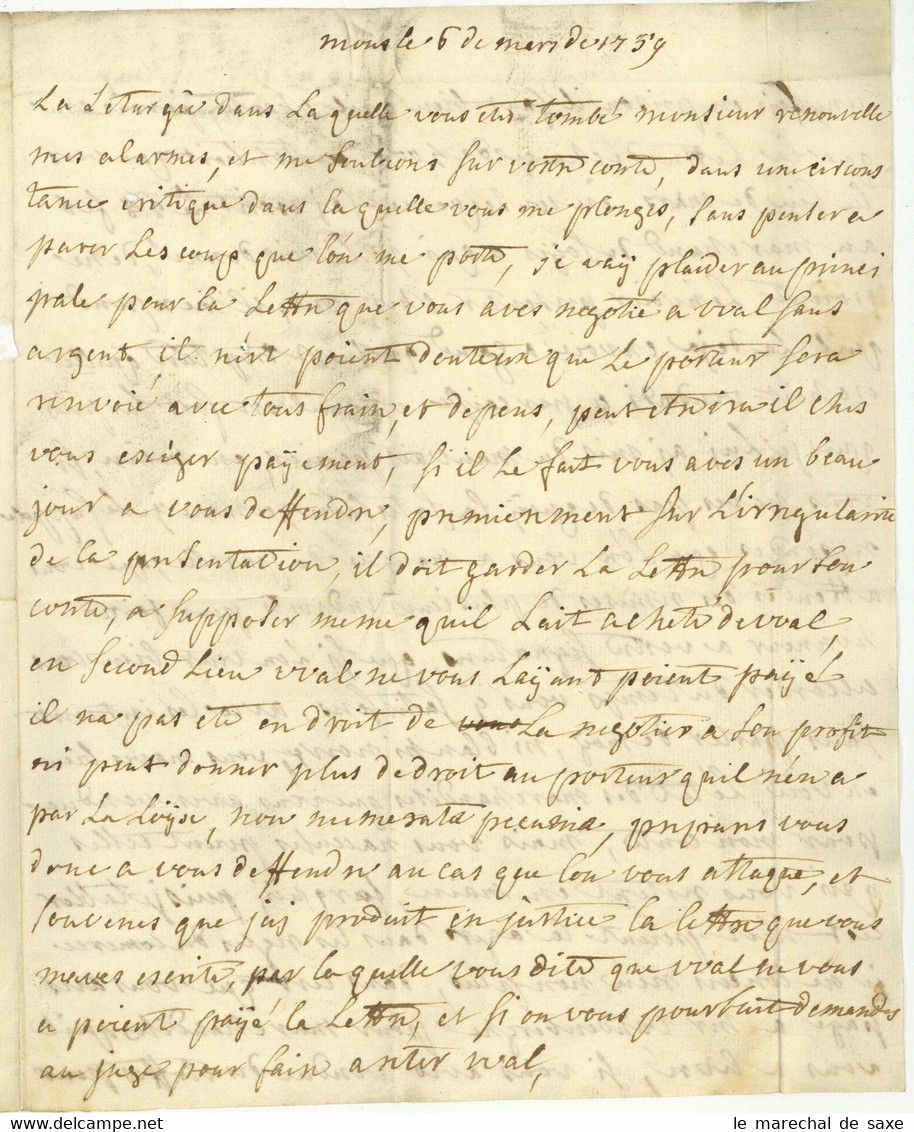 mons le 6 de mars de 1759
La Leturgie dans Laquelle vous etes tombé monsieur renouvelle
mes alarmes, et me soutiens sur votre conte, dans une circons
tance critique dans laquelle vous me plongés, sans penser a
parer Les coup que l'on me porte, je vaÿ plaider au princi
pale pour la Lettre que vous aves negotié a wal sans
argent il n'est poient douteux que Le porteur sera
renvoié avec tous frain, et depens, peut etre ira il ches
vous exiger païement, si il Le fait vous aves un beau
jour a vous deffendre, premierement sur L'irregularité
de la presentation, il doit garder La Lettre pour son
conte, a supposer meme quil Lait acheté de wal,
en second Lieu wal ne vous Laÿant poient païé
il na pas ete en droit de La negotier a son profit
ni peut donner plus de droit au porteur quil n'en a
par La Loÿse, non numerata pecunia, preparés vous
donc a vous deffendre au cas que lon vous attaque, et
souvenes que jaj produit en justice la lettre que vous
maves escrite, par laquelle vous dite que wal ne vous
a poient païé la Lettre, et si on vous poursuit demandes
au juge pour fair areter wal,
le marechal de saxe